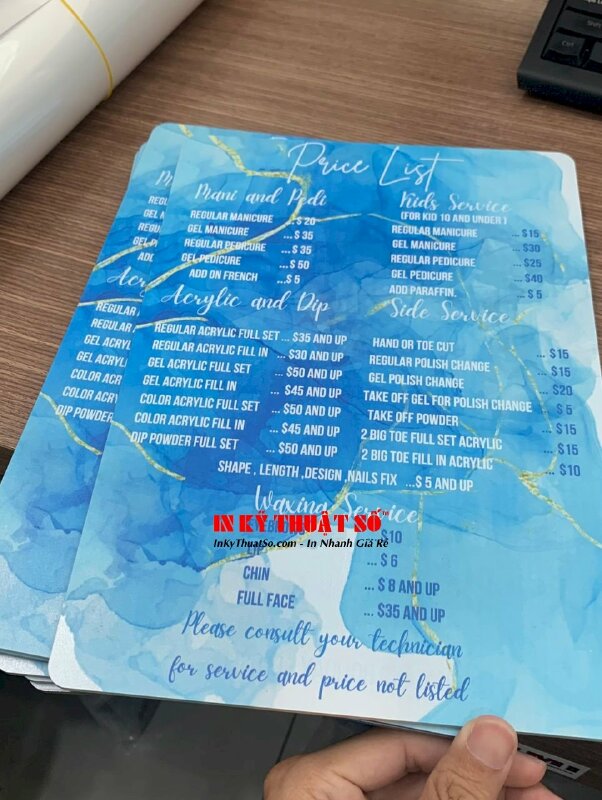 Price List
Mani and Pedi
REGULAR MANICURE ...$20
GEL MANICURE ...$35
REGULAR PEDICURE ...$35
GEL PEDICURE ...$50
ADD ON FRENCH ...$5
Kids Service
(FOR KID 10 AND UNDER)
REGULAR MANICURE ...$15
GEL MANICURE ...$30
REGULAR PEDICURE ...$25
GEL PEDICURE ...$40
ADD PARAFFIN. ...$5
Acrylic and Dip
REGULAR ACRYLIC FULL SET ... $35 AND UP
REGULAR ACRYLIC FILL IN ... $30 AND UP
GEL ACRYLIC FULL SET ... $50 AND UP
GEL ACRYLIC FILL IN ... $45 AND UP
COLOR ACRYLIC FULL SET ... $50 AND UP
COLOR ACRYLIC FILL IN ... $45 AND UP
DIP POWDER FULL SET ... $50 AND UP
Side Service
HAND OR TOE CUT ... $15
REGULAR POLISH CHANGE ... $15
GEL POLISH CHANGE ... $20
TAKE OFF GEL FOR POLISH CHANGE ... $5
TAKE OFF POWDER ... $15
2 BIG TOE FULL SET ACRYLIC ... $15
2 BIG TOE FILL IN ACRYLIC ... $10
SHAPE , LENGTH ,DESIGN ,NAILS FIX ...$ 5 AND UP
Waxing Service
IN KỸ THUẬT SỐ™
InKyThuatSo.com - In Nhanh Giá Rẻ
$10
... $ 6
CHIN ... $ 8 AND UP
FULL FACE ... $35 AND UP
Please consult your technician
for service and price not listed
Ctrl